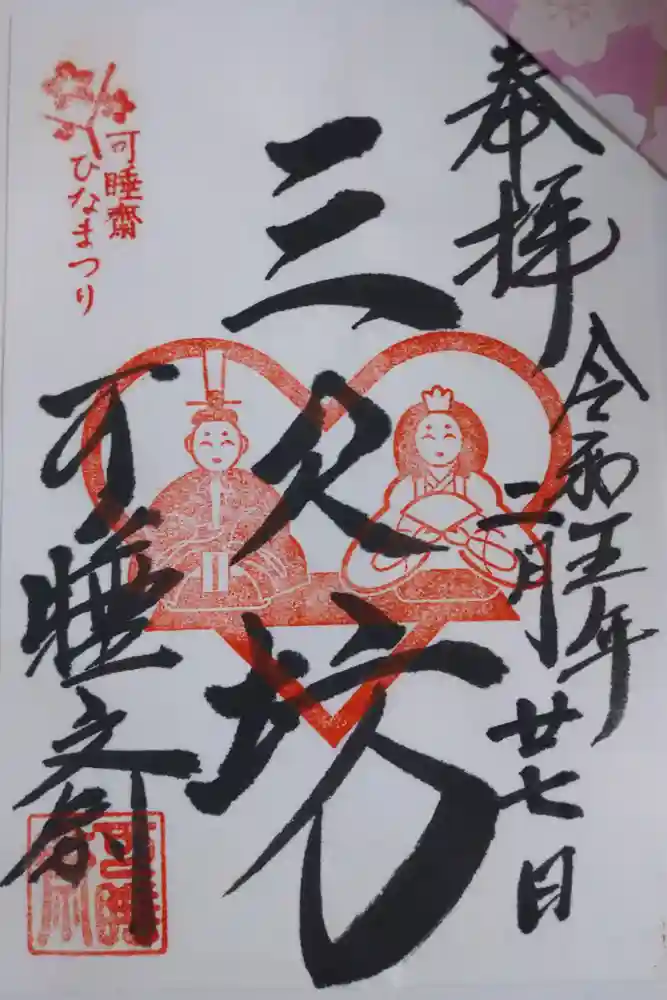 奉拝
令和五年
二月廿七日
三尺坊
可睡斎
可睡齋
ひなまつり